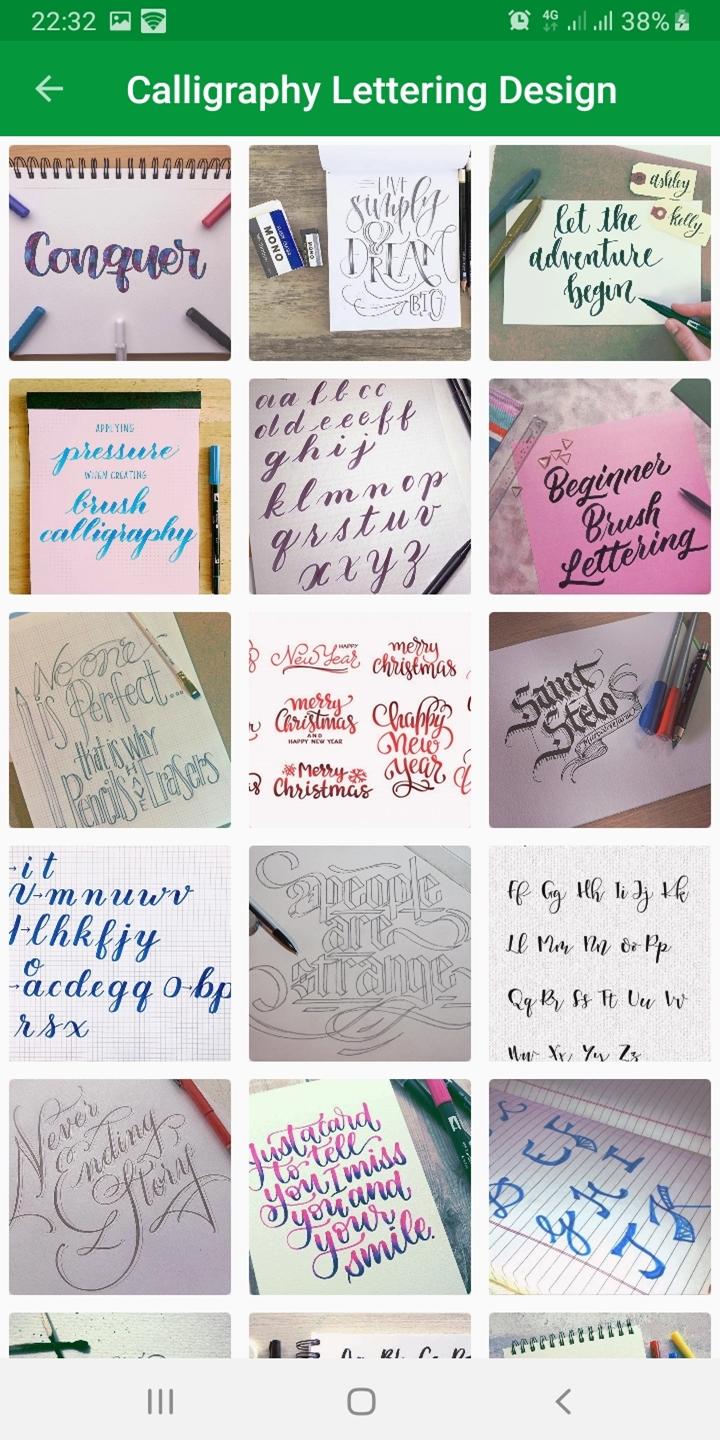 22:32
4G
38%
Calligraphy Lettering Design
Conquer
MONO
MONO
LIVE
simply
&
DREAM
BIG
ashley
kelly
let the
adventure
begin
APPLYING
pressure
WHEN CREATING
brush
calligraphy
aa bb cc
dd eeeff
ghij
klmnop
qrstuv
xxyz
Beginner
Brush
Lettering
No one
is Perfect...
that is why
Pencils HAVE Erasers
HAPPY
New Year
merry
christmas
merry
Christmas
AND
HAPPY NEW YEAR
happy
New
Year
Merry
Christmas
Saint
Stelo
it
mnuwv
lhkfjy
o
acdegq o bp
rsx
people
are
strange
Ff Gg Hh Ii Jj Kk
Ll Mm Nn oo Pp
Qq Rr Ss Tt Uu Vv
Ww Xx Yy Zz
Never
Ending
Story
Just a card
to tell
you I miss
you and
your
smile.
E F
g H I
J K
Aa Bb Cc